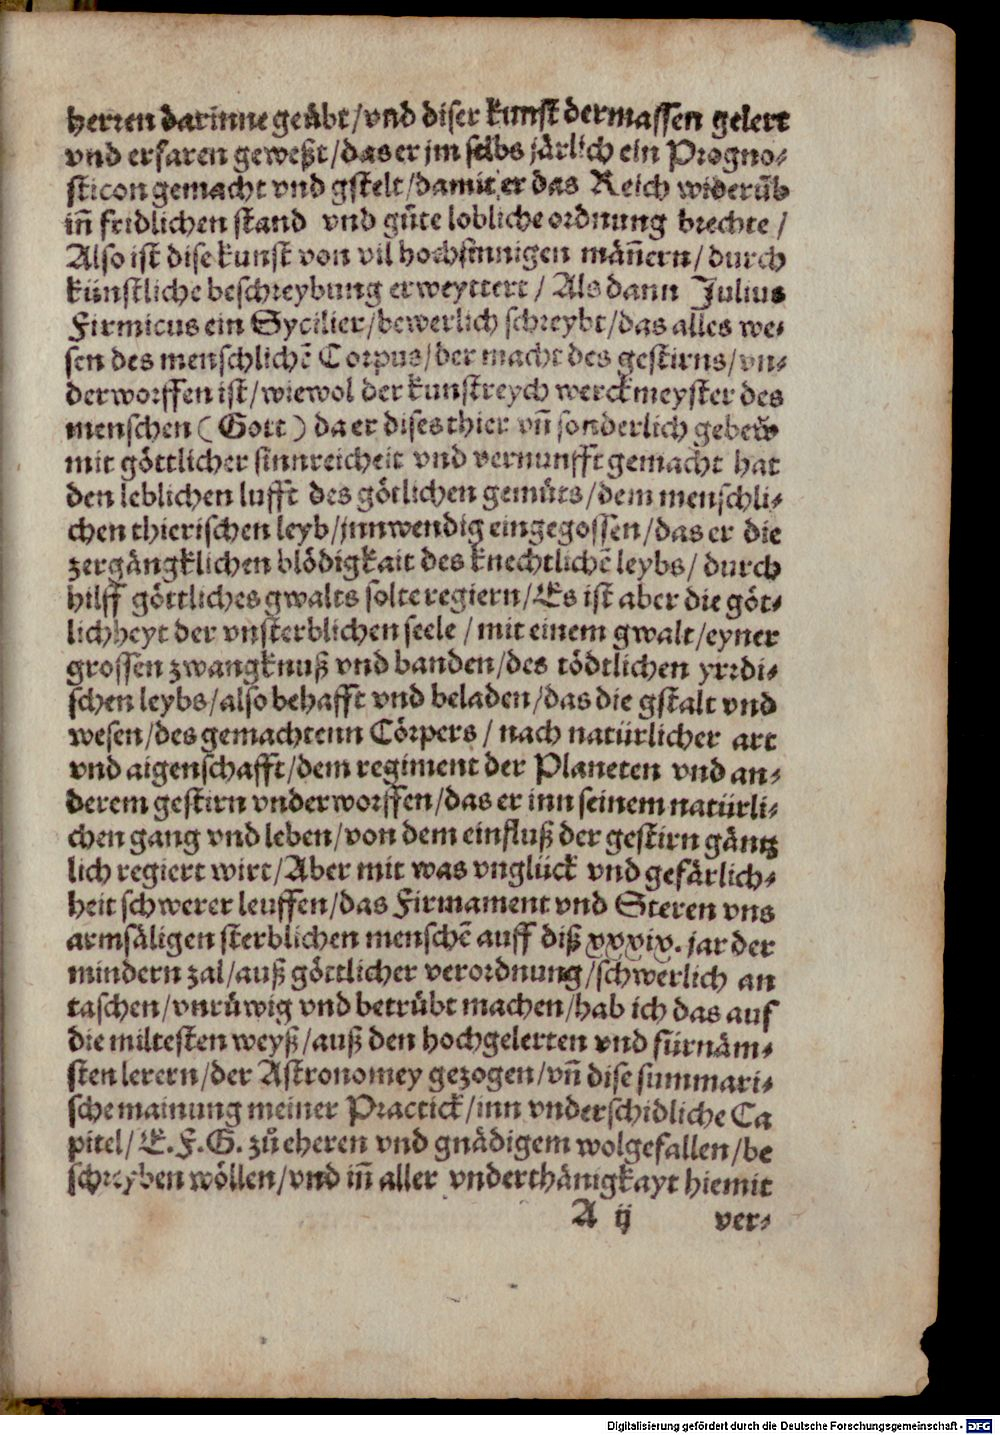 herren darinne geübt/vnd diser kunst dermassen gelert
vnd erfaren geweßt/das er jm selbs järlich ein Progno⸗
sticon gemacht vnd gstelt/damit er das Reich widerūb
iñ fridlichen stand vnd gůte lobliche ordnung brechte/
Also ist dise kunst von vil hochsinnigen mäñern/durch
künstliche beschreybung erweyttert/Als dann Julius
Firmicus ein Sycilier/bewerlich schreybt/das alles we⸗
sen des menschlichē Corpus/der macht des gestirns/vn⸗
derworffen ist/wiewol der kunstreych werckmeyster des
menschen (Gott) da er dises thier vñ sonderlich gebew
mit göttlicher sinnreicheit vnd vernunfft gemacht hat
den leblichen lufft des götlichen gemüts/dem menschli⸗
chen thierischen leyb/jnnwendig eingegossen/das er die
zergängklichen blödigkait des knechtlichē leybs/durch
hilff göttliches gwalts solte regiern/Es ist aber die göt⸗
lichheyt der vnsterblichen seele/mit einem gwalt/eyner
grossen zwangknuß vnd banden/des tödtlichen yrrdi⸗
schen leybs/also behafft vnd beladen/das die gstalt vnd
wesen/des gemachtenn Cörpers/nach natürlicher art
vnd aigenschafft/dem regiment der Planeten vnd an⸗
derem gestirn vnderworffen/das er inn seinem natürli⸗
chen gang vnd leben/von dem einfluß der gestirn gäntz
lich regiert wirt/Aber mit was vnglück vnd gefärlich⸗
heit schwerer leuffen/das Firmament vnd Steren vns
armsäligen sterblichen menschē auff diß xxxix. jar der
mindern zal/auß göttlicher verordnung/schwerlich an
taschen/vnrüwig vnd betrübt machen/hab ich das auf
die miltesten weyß/auß den hochgelerten vnd fürnäm⸗
sten lerern/der Astronomey gezogen/vñ dise summari⸗
sche mainung meiner Practick/inn vnderschidliche Ca
pitel/E.F.G. zů eheren vnd gnädigem wolgefallen/be
schreyben wöllen/vnd iñ aller vnderthänigkayt hiemit
A ij ver⸗
Digitalisierung gefördert durch die Deutsche Forschungsgemeinschaft - DFG